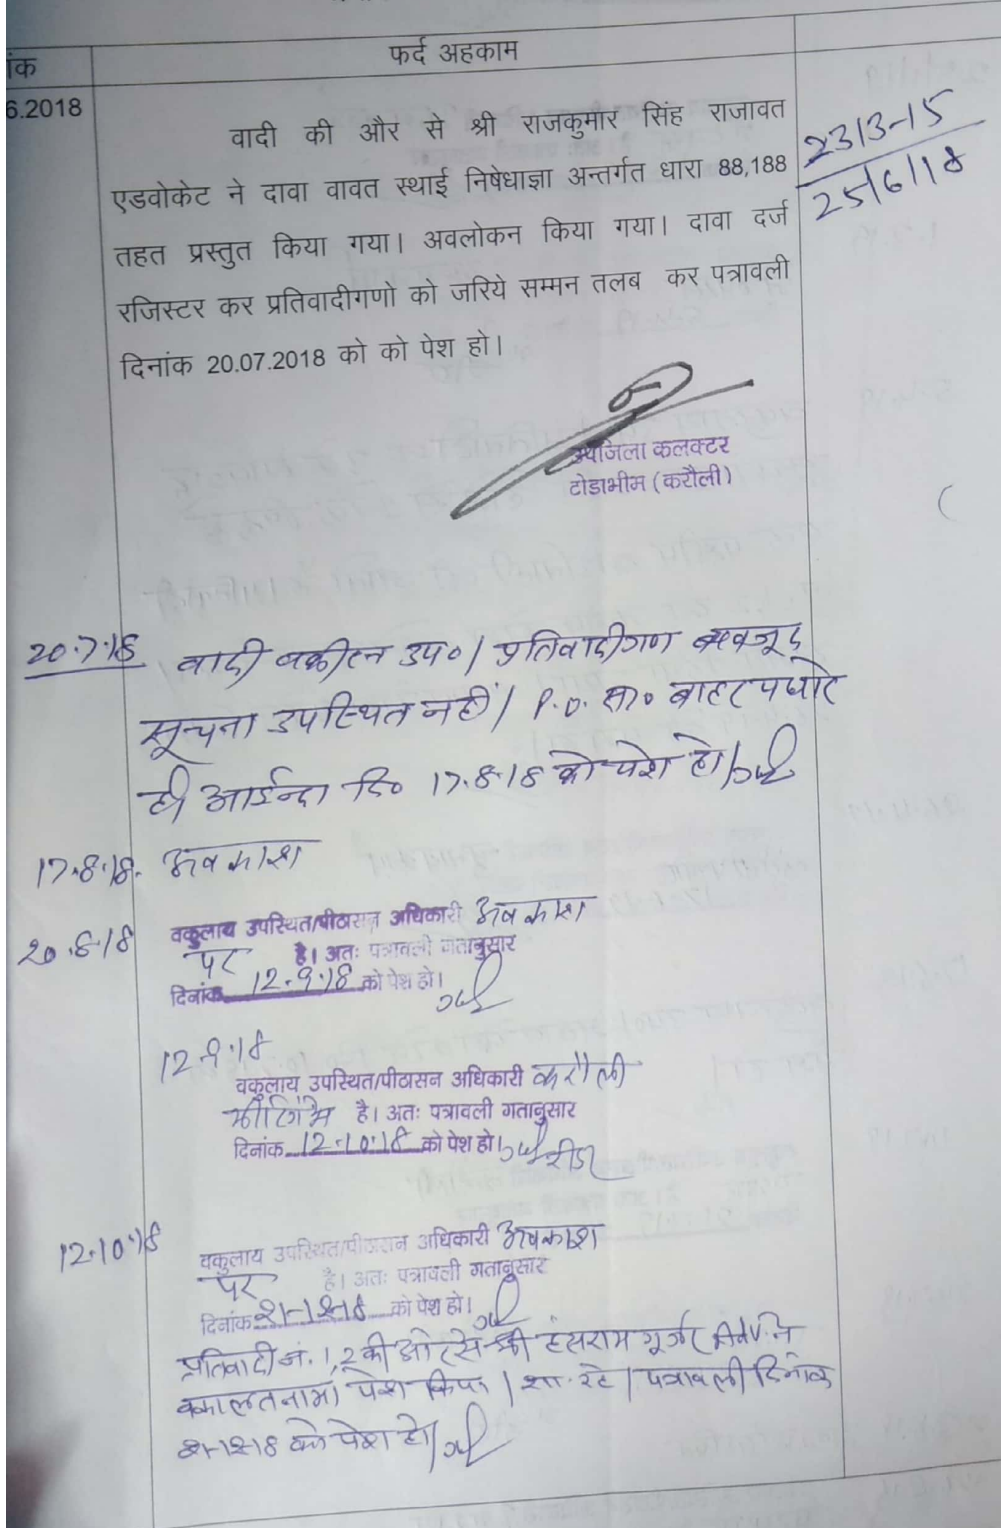 फर्द अहकाम
6.2018
वादी की और से श्री राजकुमार सिंह राजावत
एडवोकेट ने दावा वावत स्थाई निषेधाज्ञा अन्तर्गत धारा 88,188
तहत प्रस्तुत किया गया। अवलोकन किया गया। दावा दर्ज
रजिस्टर कर प्रतिवादीगणो को जरिये सम्मन तलब कर पत्रावली
दिनांक 20.07.2018 को को पेश हो।
2313-15
25/6/18
उपजिला कलक्टर
टोडाभीम (करौली)
20.7.18 वादी वकील उप० / प्रतिवादीगण बावजूद
सूचना उपस्थित नहीं / P.O. सा० बाहर पधारे
है। आईन्दा दि० 17.8.18 को पेश हो।
17.8.18. अवकाश
20.8.18 वकुलाय उपस्थित/पीठासन अधिकारी अवकाश
पर है। अतः पत्रावली गतानुसार
दिनांक 12.9.18 को पेश हो।
12.9.18
वकुलाय उपस्थित/पीठासन अधिकारी करौली
मीटिंग में है। अतः पत्रावली गतानुसार
दिनांक 12.10.18 को पेश हो।
रीडर
12.10.18 वकुलाय उपस्थित/पीठासन अधिकारी अवकाश
पर है। अतः पत्रावली गतानुसार
दिनांक 21-12-18 को पेश हो।
प्रतिवादी नं. 1,2 की ओर से श्री हंसराम गूर्जर Adv. ने
वकालतनामा पेश किया / शा. रहे / पत्रावली दिनांक
21-12-18 को पेश हो।